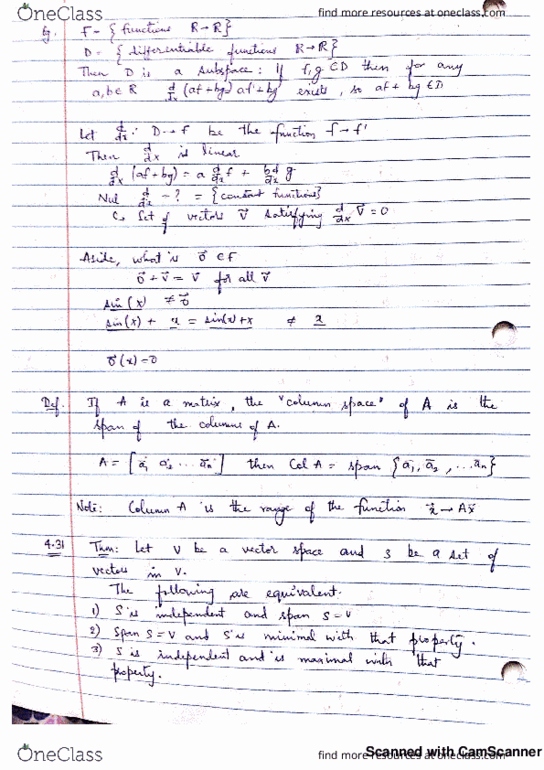 OneClass
find more resources at oneclass.com
eg. F - { functions R→R}
D = { differentiable functions R→R}
Then D is a subspace: If f, g ∈D then for any
a, b∈R d/dx (af + bg) af' + bg' exists, so af + bg ∈D
Let d/dx : D→f be the function f→f'
Then d/dx is linear
d/dx (af + bg) = a d/dx f + b d/dx g
Nul d/dx - ? = {constant functions}
↳ Set of vectors v⃗ satisfying d/dx v⃗ = 0
Aside, what is 0⃗ ∈F
0⃗ + v⃗ = v⃗ for all v⃗
sin(x) ≠ 0⃗
sin(x) + x = sin(x)+x ≠ x
0⃗(x)=0
Def. If A is a matrix, the "column space" of A is the
span of the columns of A.
A = [a⃗1 a⃗2 ... a⃗n] then Col A = span {a⃗1, a⃗2, ... a⃗n}
Note: Column A is the range of the function x⃗ → Ax⃗
4.31 Thm: Let V be a vector space and S be a set of
vectors in V.
The following are equivalent.
1) S is independent and span S = V
2) Span S = V and S is minimal with that property.
3) S is independent and is maximal with that
property.
Scanned with CamScanner
OneClass
find more resources at oneclass.com